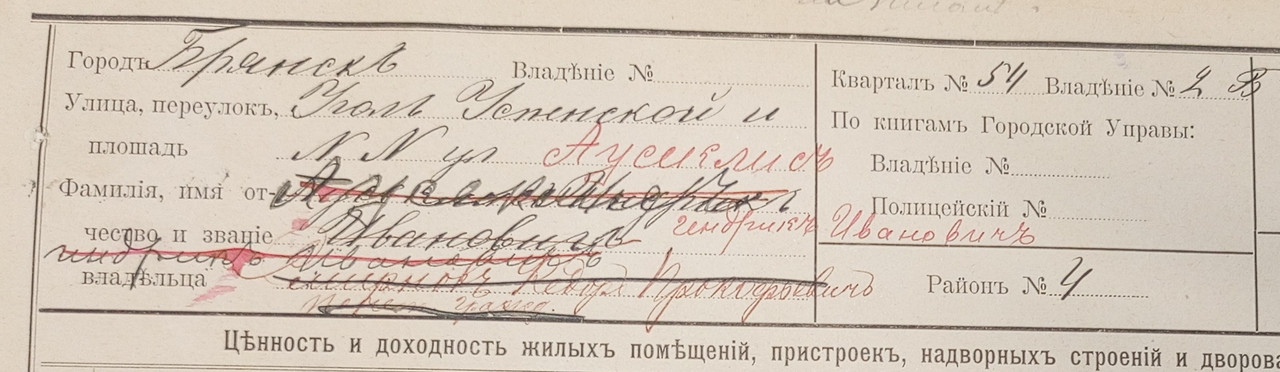 Городъ Брянскъ Владѣніе №
Улица, переулокъ, Уголъ Успенской и
площадь N N ул Аусиклисъ
Фамилія, имя от-
чество и званіе Ивановичъ гендрикъ Ивановичъ
гендрикъ Ивановичъ
владѣльца Смирновъ Федул Прокофьевичъ
Кварталъ № 54 Владѣніе № 2 В
По книгамъ Городской Управы:
Владѣніе №
Полицейскій №
Районъ № 4
Цѣнность и доходность жилыхъ помѣщеній, пристроекъ, надворныхъ строеній и дворова